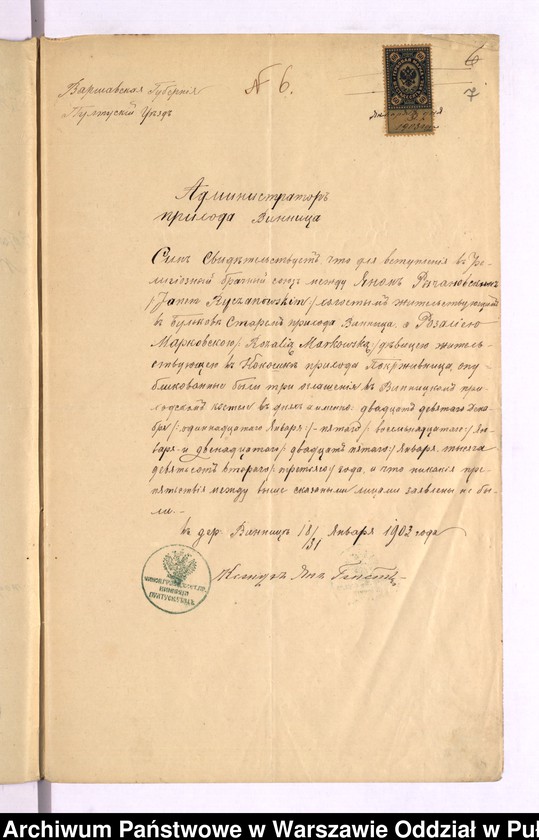 Варшавская Губернія
Пултускій Уѣздъ
N 6.
6
7
Администраторъ
прихода Винница
Симъ Свидѣтельствуетъ что для вступленія въ Ре-
лигіозный брачный союз между Яномъ Рычановскимъ
/Janem Ryczanowskim/ холостымъ жительствующимъ
въ Бульковѣ Старомъ прихода Винница, а Розаліею
Марковскою /Rozalią Markowską/ дѣвицею житель-
ствующею въ прихода Покрживница опу-
бликованно были три оглашенія въ Винницкомъ при-
ходскомъ костелѣ въ дняхъ а именно: двадцать девятаго Дека-
бря /:одиннадцатаго Января:/ - пятаго /:восемьнадцатаго:/ Ян-
варя и двенадцатаго /:двадцать пятаго:/ Января тысяча
девятьсотъ второго /:третьяго:/ года, и что никакія пре-
пятствія между выше сказанными лицами заявлено не бы-
ли.-
въ дер. Винницѣ 18/31 Января 1903 года
Ксендзъ Янъ
Archiwum Państwowe w Warszawie Oddział w Puł